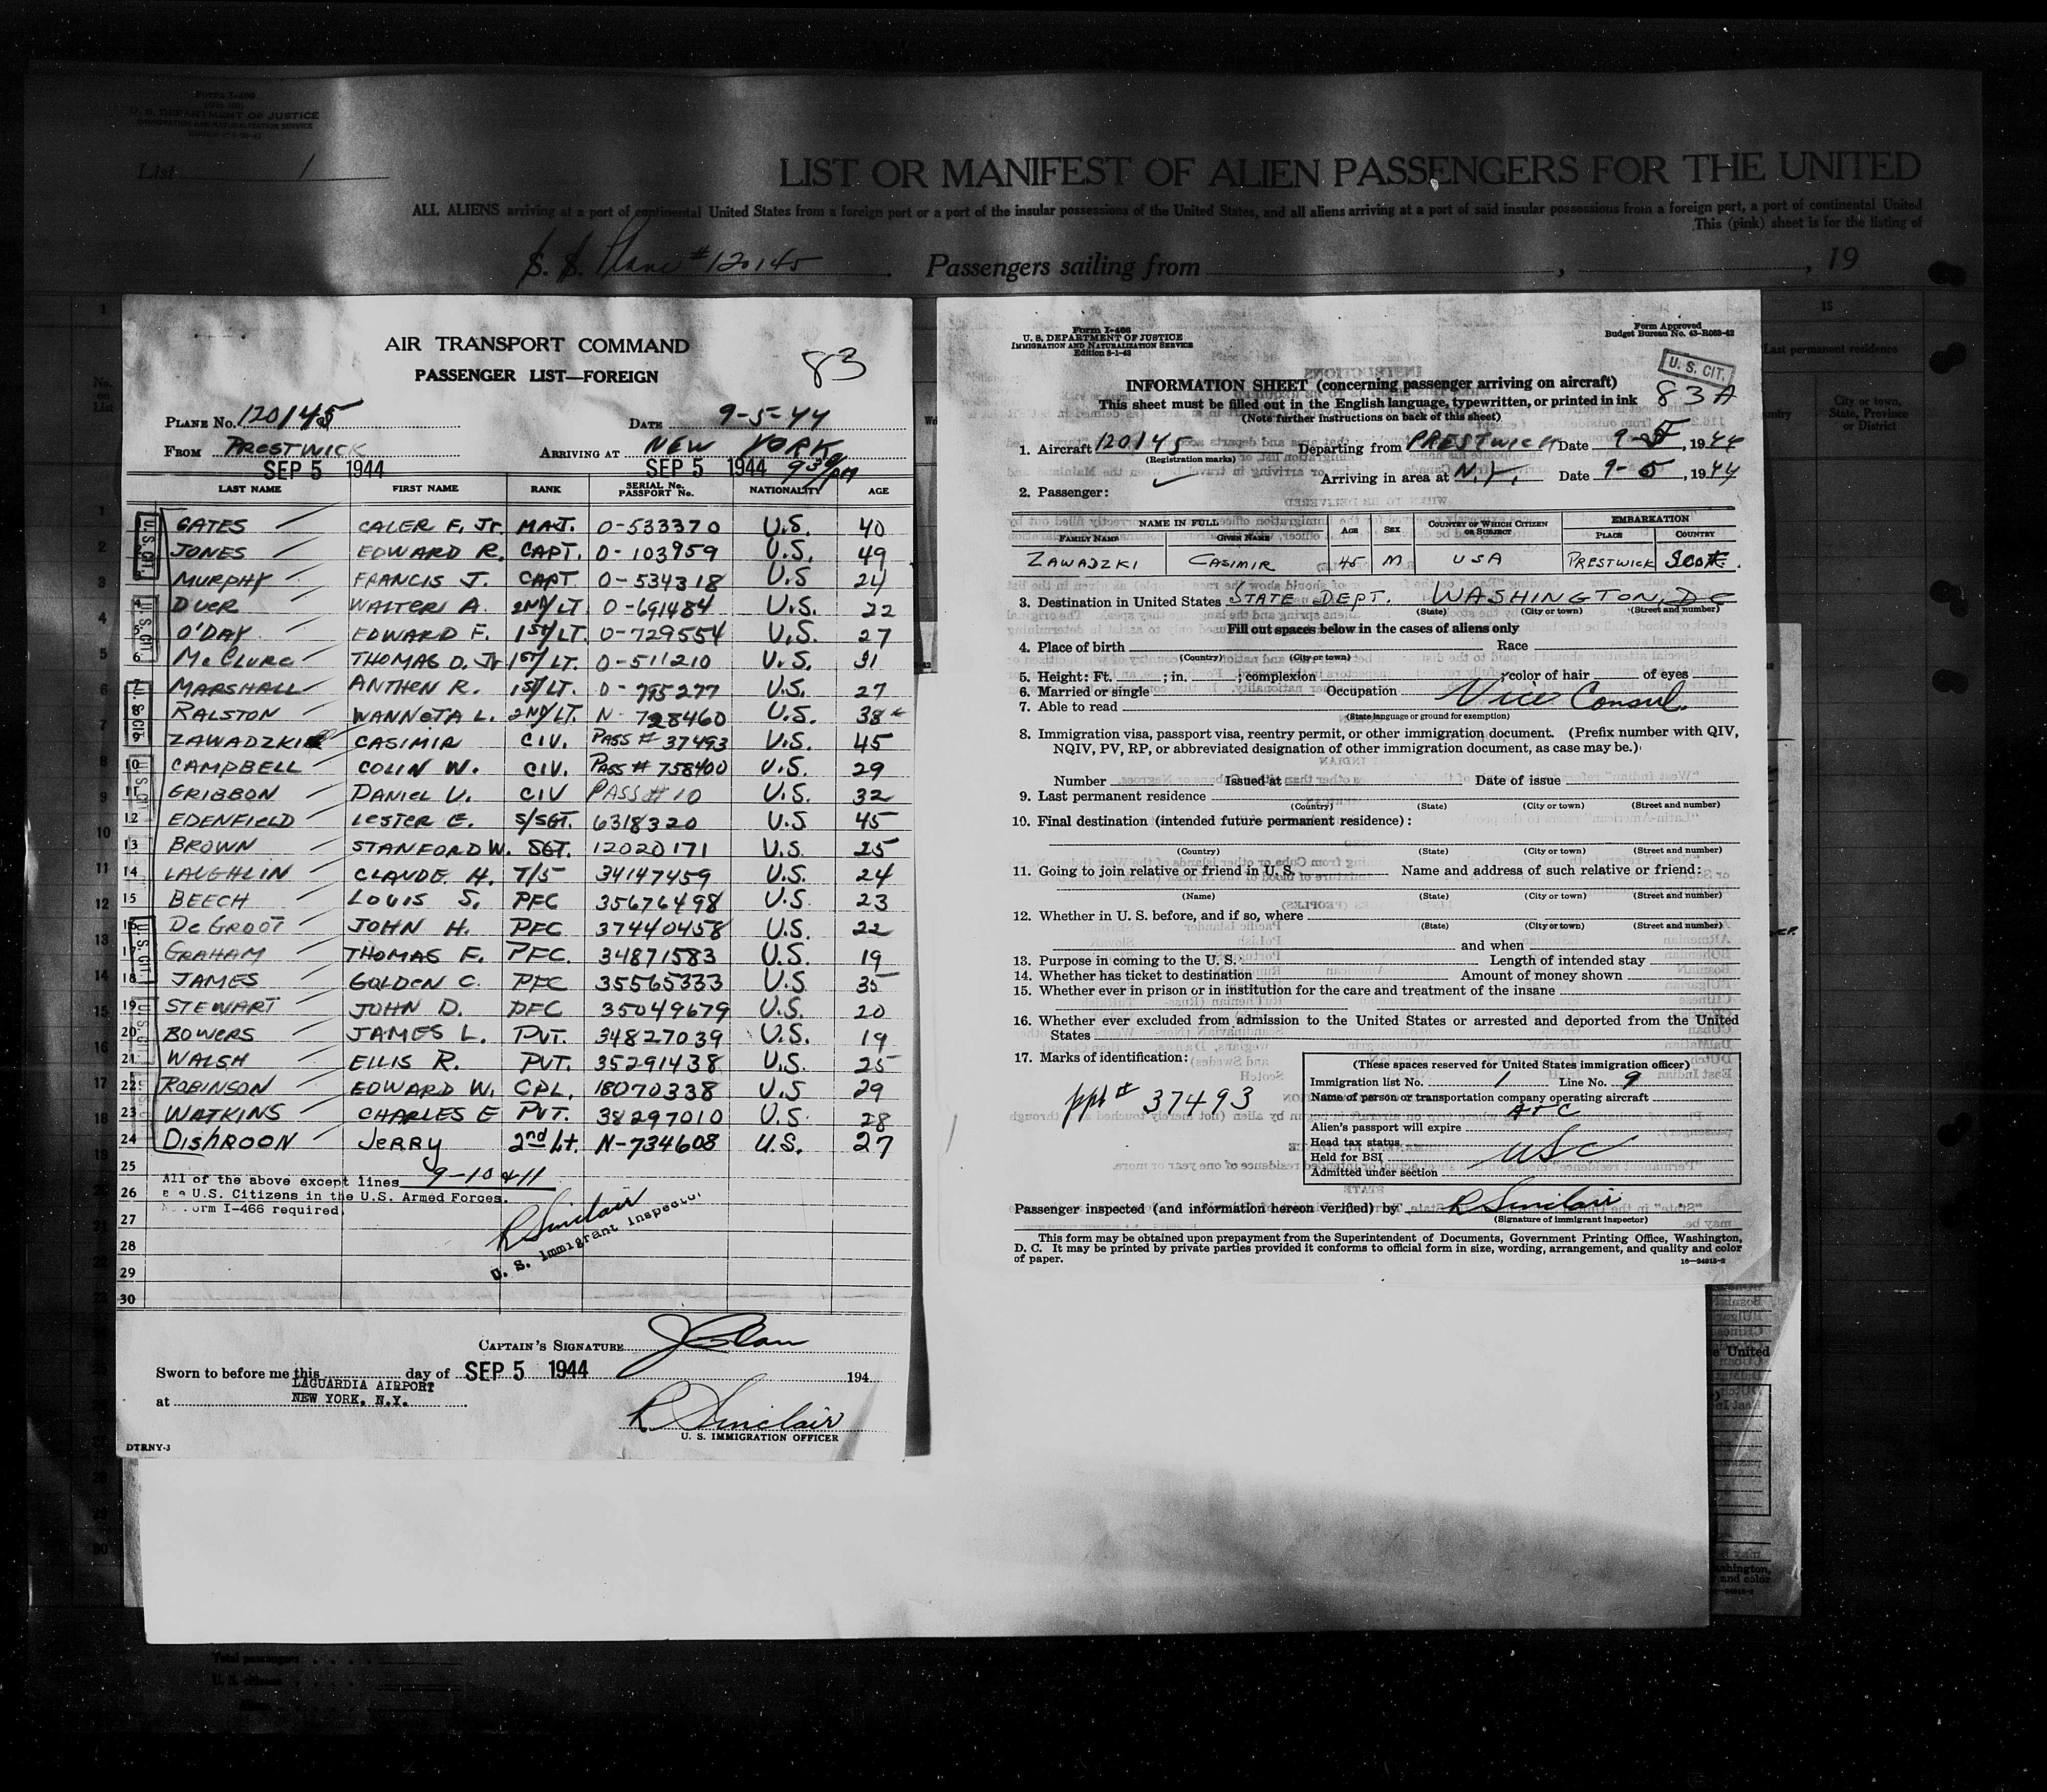 Form I-466
U. S. DEPARTMENT OF JUSTICE
IMMIGRATION AND NATURALIZATION SERVICE
List 1
LIST OR MANIFEST OF ALIEN PASSENGERS FOR THE UNITED
ALL ALIENS arriving at a port of continental United States from a foreign port or a port of the insular possessions of the United States, and all aliens arriving at a port of said insular possessions from a foreign port, a port of continental United
This (pink) sheet is for the listing of
S. S. Plane #120145 Passengers sailing from , , 19
AIR TRANSPORT COMMAND
PASSENGER LIST—FOREIGN
83
PLANE No. 120145 DATE 9-5-44
FROM PRESTWICK ARRIVING AT NEW YORK
SEP 5 1944 SEP 5 1944 930 PM
LAST NAME FIRST NAME RANK SERIAL No. PASSPORT No. NATIONALITY AGE
GATES CALER F. Jr. MAJ. O-533370 U.S. 40
JONES EDWARD R. CAPT. O-103959 U.S. 49
MURPHY FRANCIS J. CAPT. O-534318 U.S 24
4 DUER WALTER A. 2ND/LT O-691484 U.S. 22
5 O'DAY EDWARD F. 1ST/LT. O-729554 U.S. 27
6 McClure THOMAS D. Jr 1ST/LT. O-511210 U.S. 31
7 MARSHALL ANTHEN R. 1ST/LT. O-795277 U.S. 27
8 RALSTON WANNETA L. 2ND/LT. N-728460 U.S. 38
9 ZAWADZKI CASIMIR CIV. PASS # 37493 U.S. 45
10 CAMPBELL COLIN W. CIV. PASS # 758400 U.S. 29
11 GRIBBON DANIEL V. CIV PASS # 10 U.S. 32
12 EDENFIELD LESTER E. S/SGT. 6318320 U.S 45
13 BROWN STANFORD W. SGT. 12020171 U.S. 25
14 LAUGHLIN CLAUDE H. T/5 34147459 U.S. 24
15 BEECH LOUIS S. PFC 35676498 U.S. 23
16 DeGROOT JOHN H. PFC 37440458 U.S. 22
17 GRAHAM THOMAS F. PFC. 34871583 U.S. 19
18 JAMES GOLDEN C. PFC 35565333 U.S 35
19 STEWART JOHN D. PFC 35049679 U.S. 20
20 BOWERS JAMES L. PVT. 34827039 U.S. 19
21 WALSH ELLIS R. PVT. 35291438 U.S. 25
22 ROBINSON EDWARD W. CPL. 18070338 U.S 29
23 WATKINS CHARLES E PVT. 38297010 U.S. 28
24 DISHROON JERRY 2nd Lt. N-734608 U.S. 27
25 All of the above except lines 9-10 & 11
26 are U.S. Citizens in the U.S. Armed Forces.
27 No Form I-466 required.
R Sinclair
U. S. Immigrant Inspector
28
29
30
CAPTAIN'S SIGNATURE
Sworn to before me this day of SEP 5 1944 194
at LAGUARDIA AIRPORT
NEW YORK, N.Y.
R Sinclair
U. S. IMMIGRATION OFFICER
DTRNY-3
Form I-466
U. S. DEPARTMENT OF JUSTICE
IMMIGRATION AND NATURALIZATION SERVICE
Edition 3-1-43
Form Approved
Budget Bureau No. 43-R063-42
U. S. CIT.
83A
INFORMATION SHEET (concerning passenger arriving on aircraft)
This sheet must be filled out in the English language, typewritten, or printed in ink
(Note further instructions on back of this sheet)
1. Aircraft 120145 Departing from PRESTWICK Date 9-5, 1944
(Registration marks)
Arriving in area at N.Y. Date 9-5, 1944
2. Passenger:
NAME IN FULL AGE SEX COUNTRY OF WHICH CITIZEN OR SUBJECT EMBARKATION
FAMILY NAME GIVEN NAME PLACE COUNTRY
ZAWADZKI CASIMIR 45 M USA PRESTWICK Scot.
3. Destination in United States STATE DEPT. WASHINGTON, DC
(State) (City or town) (Street and number)
Fill out spaces below in the cases of aliens only
4. Place of birth Race
(Country) (City or town)
5. Height: Ft. ; in. ; complexion ; color of hair of eyes
6. Married or single Occupation Vice Consul.
7. Able to read
(State language or ground for exemption)
8. Immigration visa, passport visa, reentry permit, or other immigration document. (Prefix number with QIV,
NQIV, PV, RP, or abbreviated designation of other immigration document, as case may be.)
Number Issued at Date of issue
9. Last permanent residence
(Country) (State) (City or town) (Street and number)
10. Final destination (intended future permanent residence):
(Country) (State) (City or town) (Street and number)
11. Going to join relative or friend in U. S. Name and address of such relative or friend:
(Name) (State) (City or town) (Street and number)
12. Whether in U. S. before, and if so, where
(State) (City or town) (Street and number)
and when
13. Purpose in coming to the U. S. Length of intended stay
14. Whether has ticket to destination Amount of money shown
15. Whether ever in prison or in institution for the care and treatment of the insane
16. Whether ever excluded from admission to the United States or arrested and deported from the United
States
17. Marks of identification:
ppt # 37493
(These spaces reserved for United States immigration officer)
Immigration list No. 1 Line No. 9
Name of person or transportation company operating aircraft
ATC
Alien's passport will expire
Head tax status USC
Held for BSI
Admitted under section
Passenger inspected (and information hereon verified) by R Sinclair
(Signature of immigrant inspector)
This form may be obtained upon prepayment from the Superintendent of Documents, Government Printing Office, Washington,
D. C. It may be printed by private parties provided it conforms to official form in size, wording, arrangement, and quality and color
of paper.
16—24915-2
15
Last permanent residence
City or town, State, Province or District
No. on List
Total passengers
U. S. citizens
Aliens